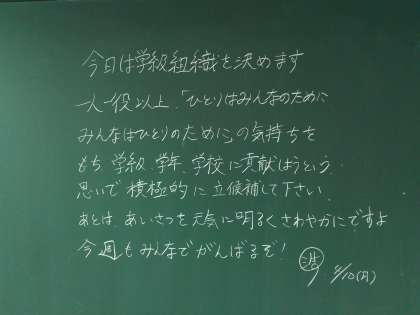 今日は学級組織を決めます
一人一役以上、「ひとりはみんなのために
みんなはひとりのために」の気持ちを
もち、学級、学年、学校に貢献しようという
思いで積極的に立候補して下さい
あとは、あいさつを元気に明るくさわやかにですよ
今週もみんなでがんばるぞ!
/10(月)